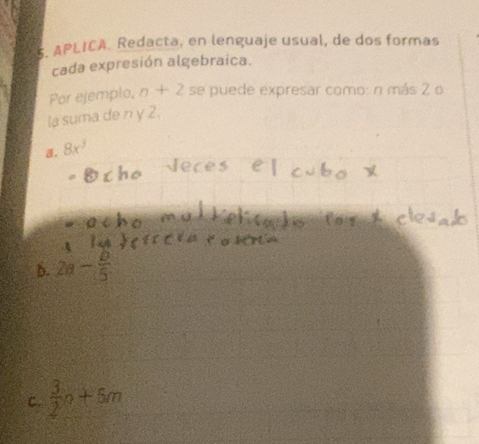 5. APLICA. Redacta, en lenguaje usual, de dos formas
cada expresión algebraica.
Por ejemplo, n + 2 se puede expresar como: n más 2 o
la suma de n y 2.
a. 8x³
- Ocho veces el cubo x
- ocho multiplicado por x elevado
a la tercera
b. 2a - b/5
c. 3/2 n + 5m